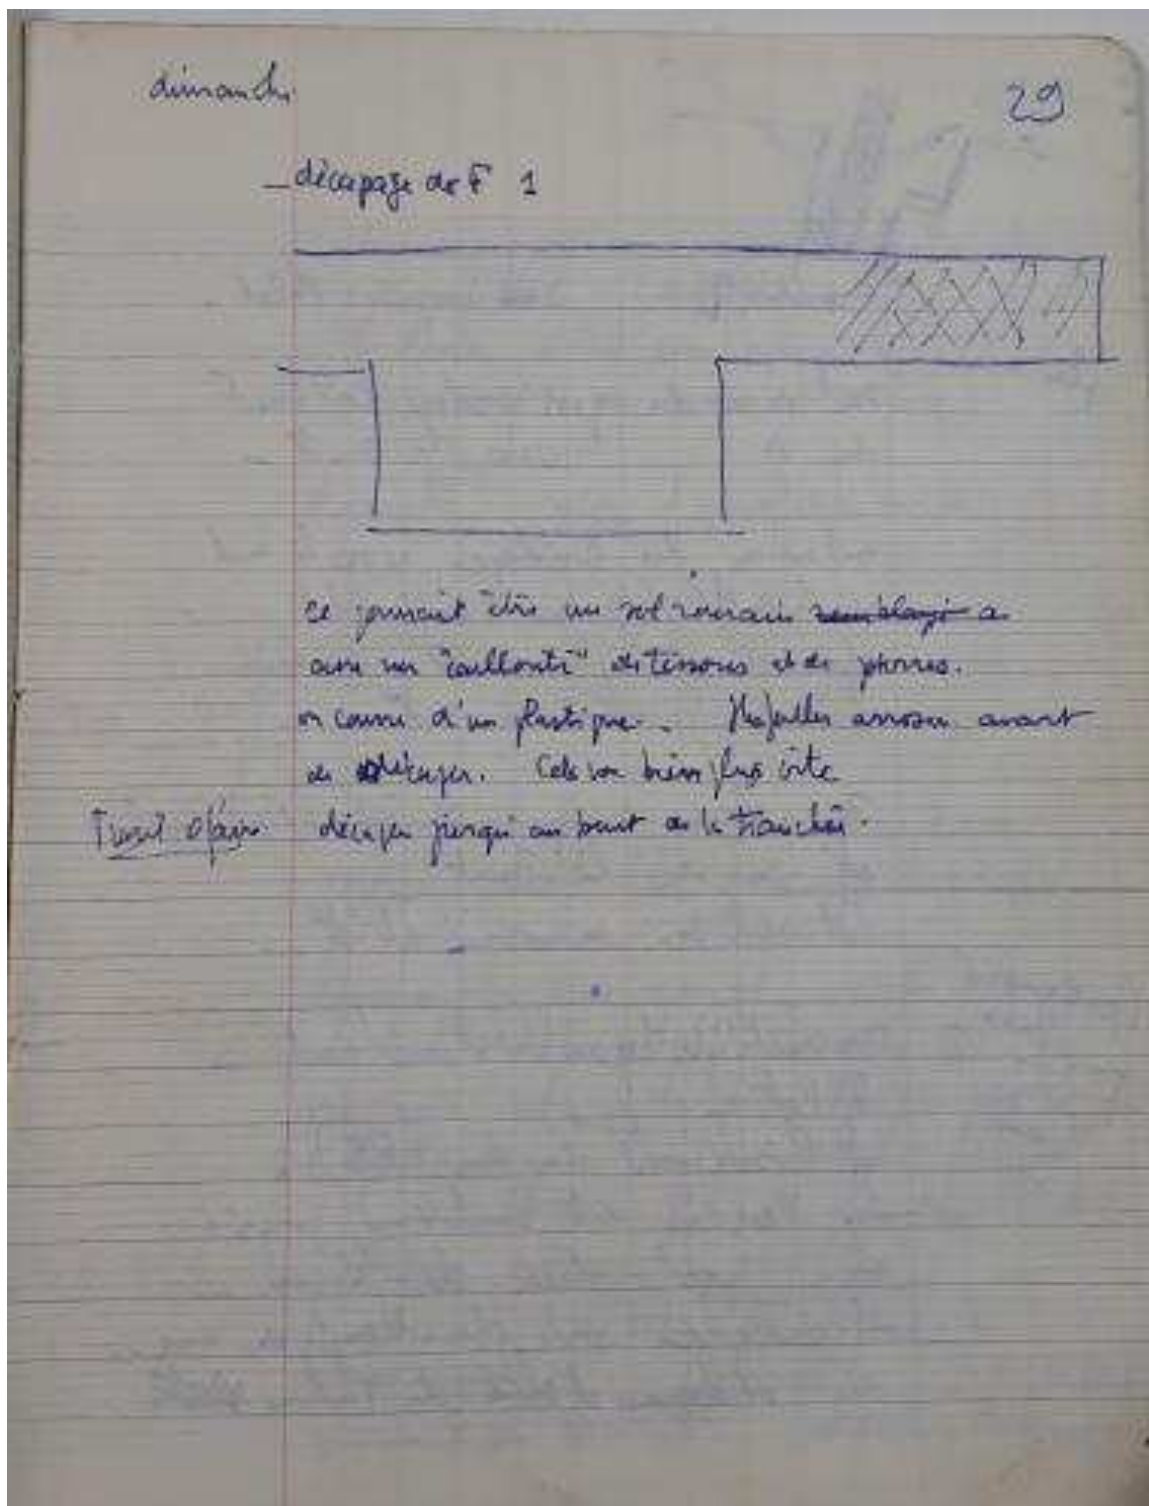 dimanche
29
_ décapage de F 1
ce pourrait être un sol romain remblayé a
avec un "caillouti" de tessons et de pierres.
on couvre d'un plastique. Il fallu arroser avant
de décaper. Cela va bien plus vite
Travail à faire décaper jusqu'au bout de la tranchée.